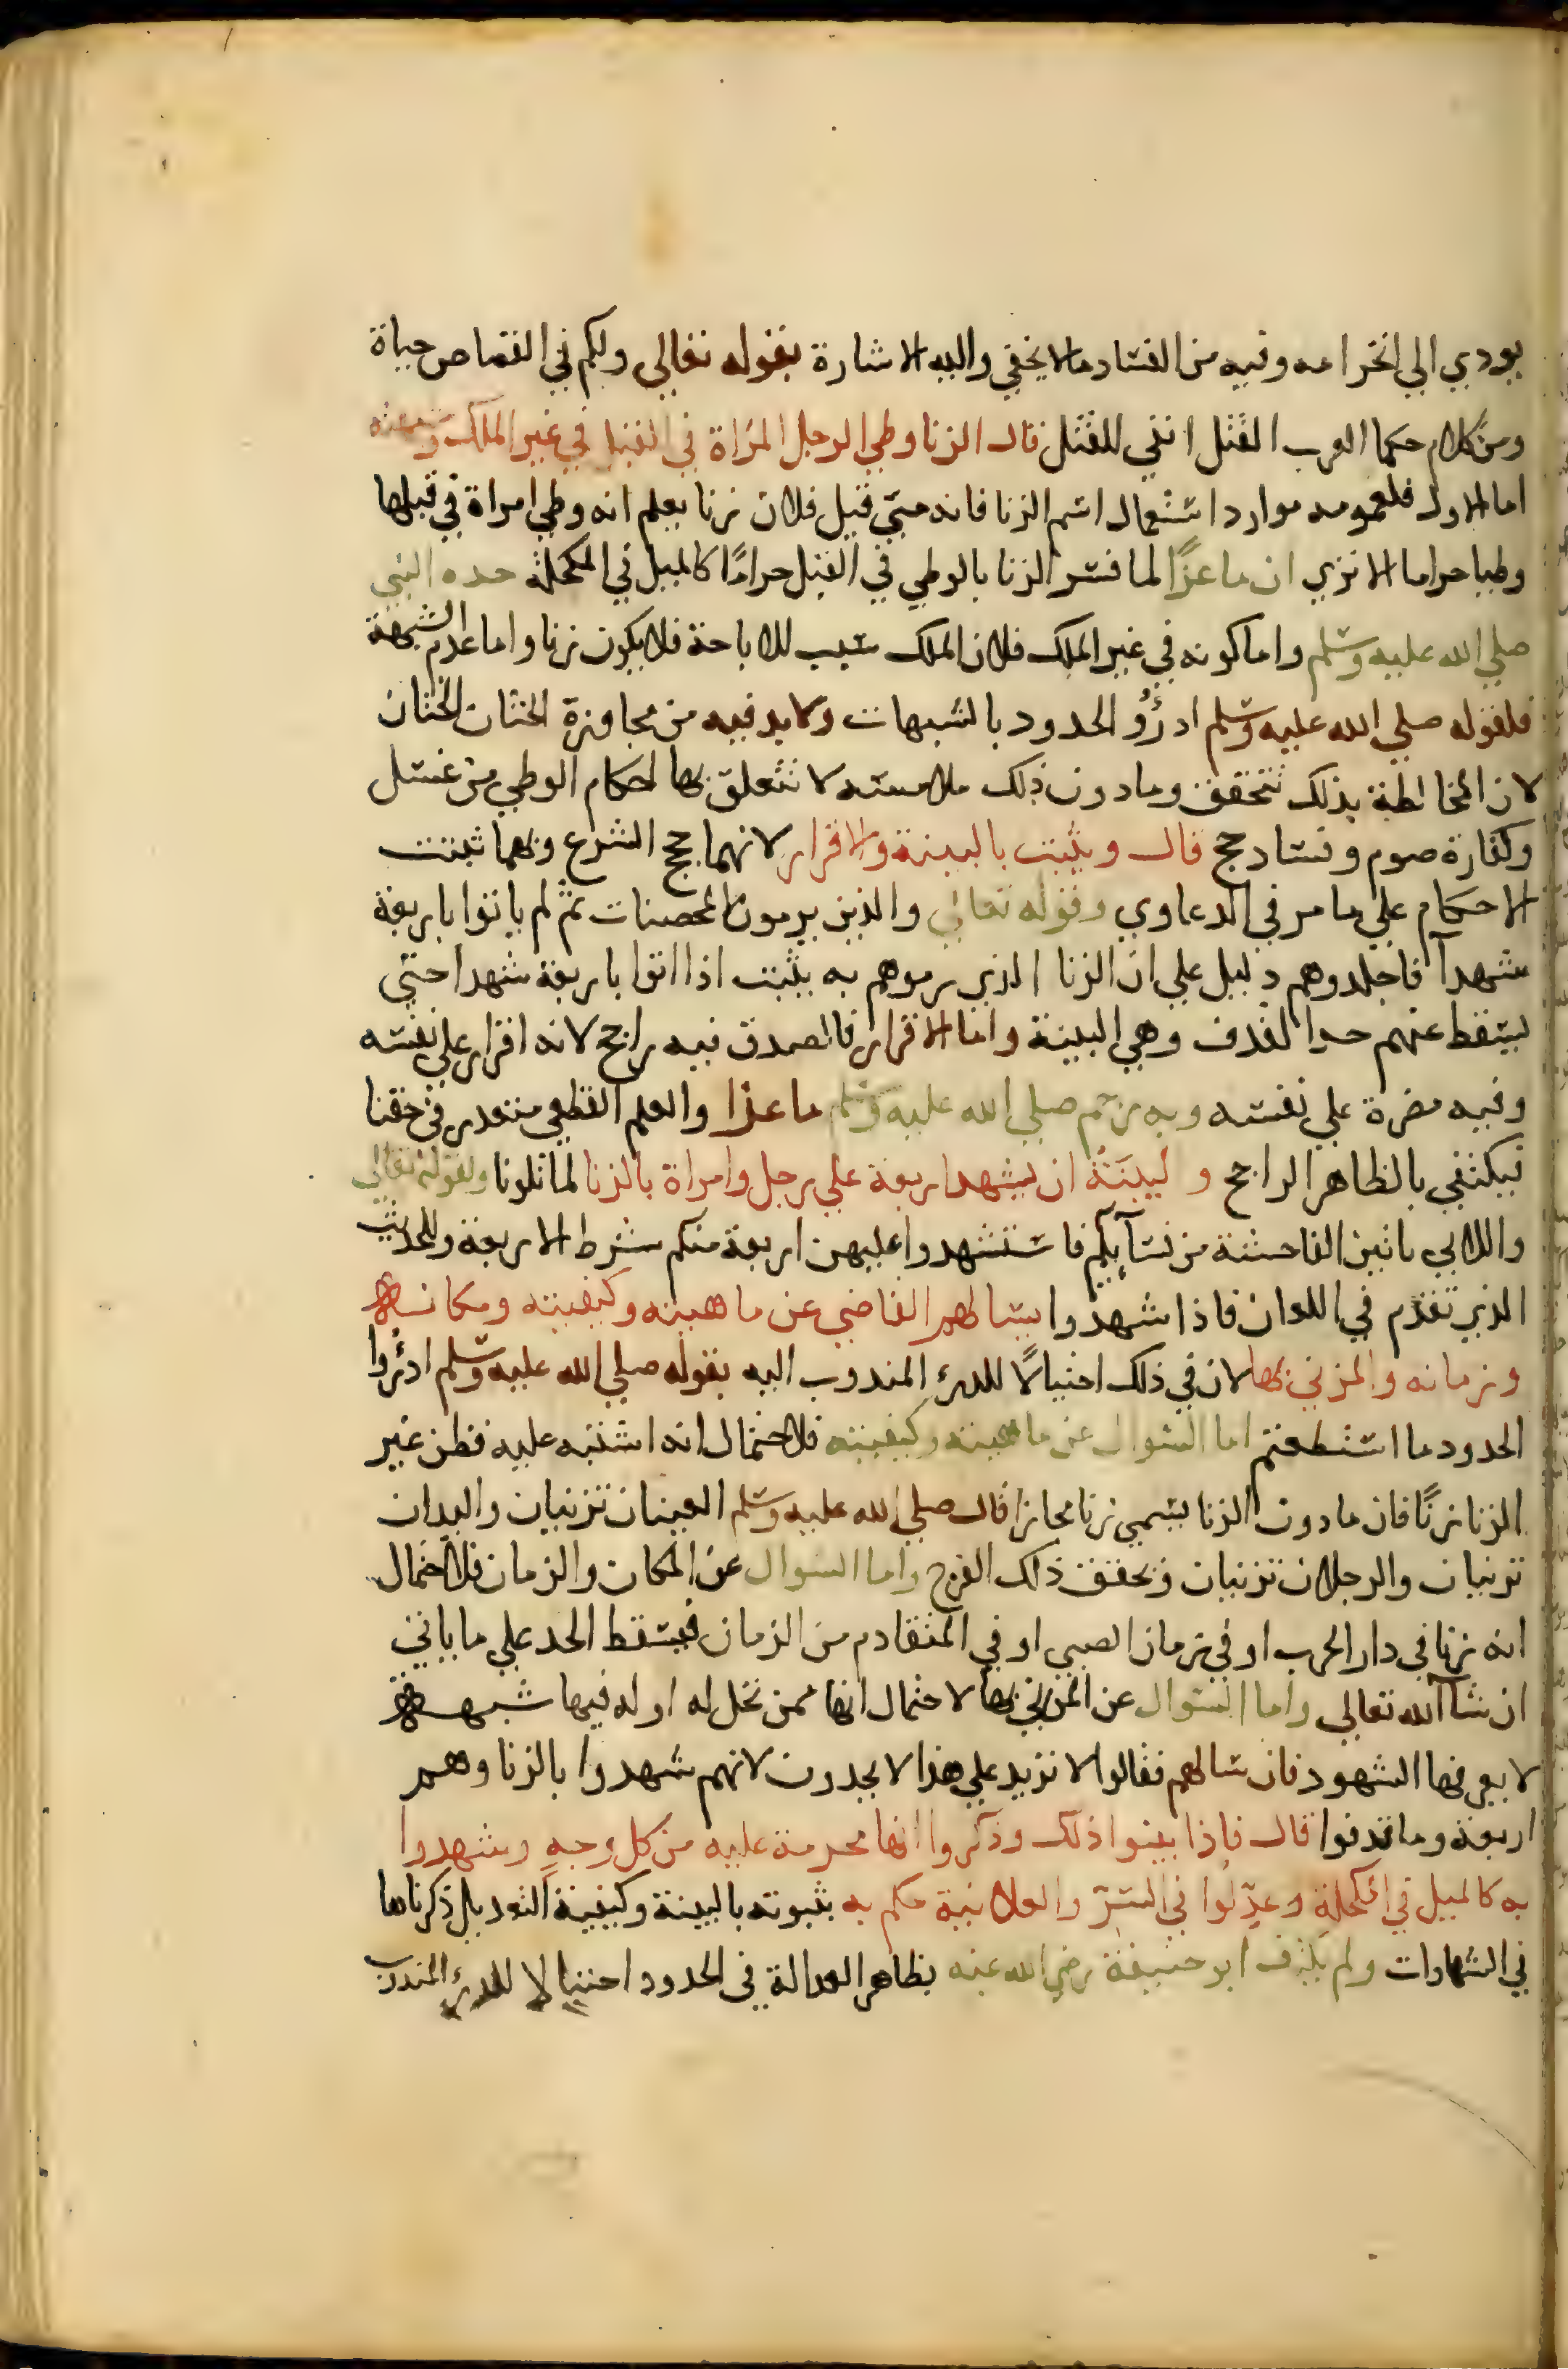 يودي الي انخرامه وفيه من الفساد ما لا يخفي واليه الاشارة بقوله تعالي ولكم في القصاص حياة
ومن كلام حكما العرب القتل انفي للقتل قال الزنا وطي الرجل المراة في القبل في غير الملك وشبهته
اما الاول فلعمومه موارد استعمال اسم الزنا فانه متي قيل فلان زنا يعلم انه وطي امراة في قبلها
وطيا حراما الا تري ان ماعزًا لما فسر الزنا بالوطي في القبل حرامًا كالميل في المكحلة حده النبي
صلي الله عليه وسلم واما كونه في غير الملك فلان الملك سبب للاباحة فلا يكون زنا واما عدم الشبهة
فلقوله صلي الله عليه وسلم ادرؤُ الحدود بالشبهات ولا بد فيه من مجاوزة الختان الختان
لان المخالطة بذلك تتحقق وما دون ذلك ملامسته لا تتعلق بها احكام الوطي من غسل
وكفارة صوم وفساد حج قال ويثبت بالبينة والاقرار لانهما حجج الشرع وبهما تثبت
الاحكام علي ما مر في الدعاوي وقوله تعالي والذين يرمون المحصنات ثم لم ياتوا باربعة
شهدآ فاجلدوهم دليل علي ان الزنا الذي رموهم به يثبت اذا اتوا باربعة شهدا حتي
ليسقط عنهم حد القذف وهي البينة واما الاقرار فالصدق فيه راجح لانه اقرار علي نفسه
وفيه مضرة علي نفسه وبه رجم صلي الله عليه وسلم ماعزا والعلم القطعي متعدر في حقنا
فيكتفي بالظاهر الراجح و لبينَةُ ان يشهد اربعة علي رجل وامراة بالزنا لما تلونا ولقوله تعالي
واللاتي ياتين الفاحشة من نسآيكم فاستشهدوا عليهن اربعة منكم شرط الاربعة وللحديث
الذي تقدم في اللعان فاذا شهدوا يسالهم القاضي عن ماهيته وكيفيته ومكانه
وزمانه والمزني بها لان في ذلك احتيالًا للدرء المندوب اليه بقوله صلي الله عليه وسلم ادرؤا
الحدود ما استطعتم اما السوال عن ماهيته وكيفيته فلاحتمال انه اشتبه عليه فظن غير
الزنا زنًا فان ما دون الزنا يسمي زنا مجازا قال صلي الله عليه وسلم العينان تزنيان واليدان
تزنيان والرجلان تزنيان ويحقق ذلك الفرج واما السوال عن المكان والزمان فلاحتمال
انه زنا في دار الحرب او في زمان الصبي او في المتقادم من الزمان فيسقط الحد علي ما ياتي
ان شآ الله تعالي واما السوال عن المزني بها لاحتمال انها ممن تحل له او له فيها شبهة
لا يعرفها الشهود فان سالهم فقالوا لا نزيد علي هذا لا يحدون لانهم شهدوا بالزنا وهم
اربعة وما قدفوا قال فاذا بينوا ذلك وذكروا انها محرمة عليه من كل وجه وشهدوا
به كالميل في المكحلة وعدِّلوا في السِّر والعلانية حكم به بثبوته بالبينة وكيفية التعديل ذكرناها
في الشهادات ولم يكتف ابو حنيفة رضي الله عنه بظاهر العدالة في الحدود احتيالا للدرء المندوب